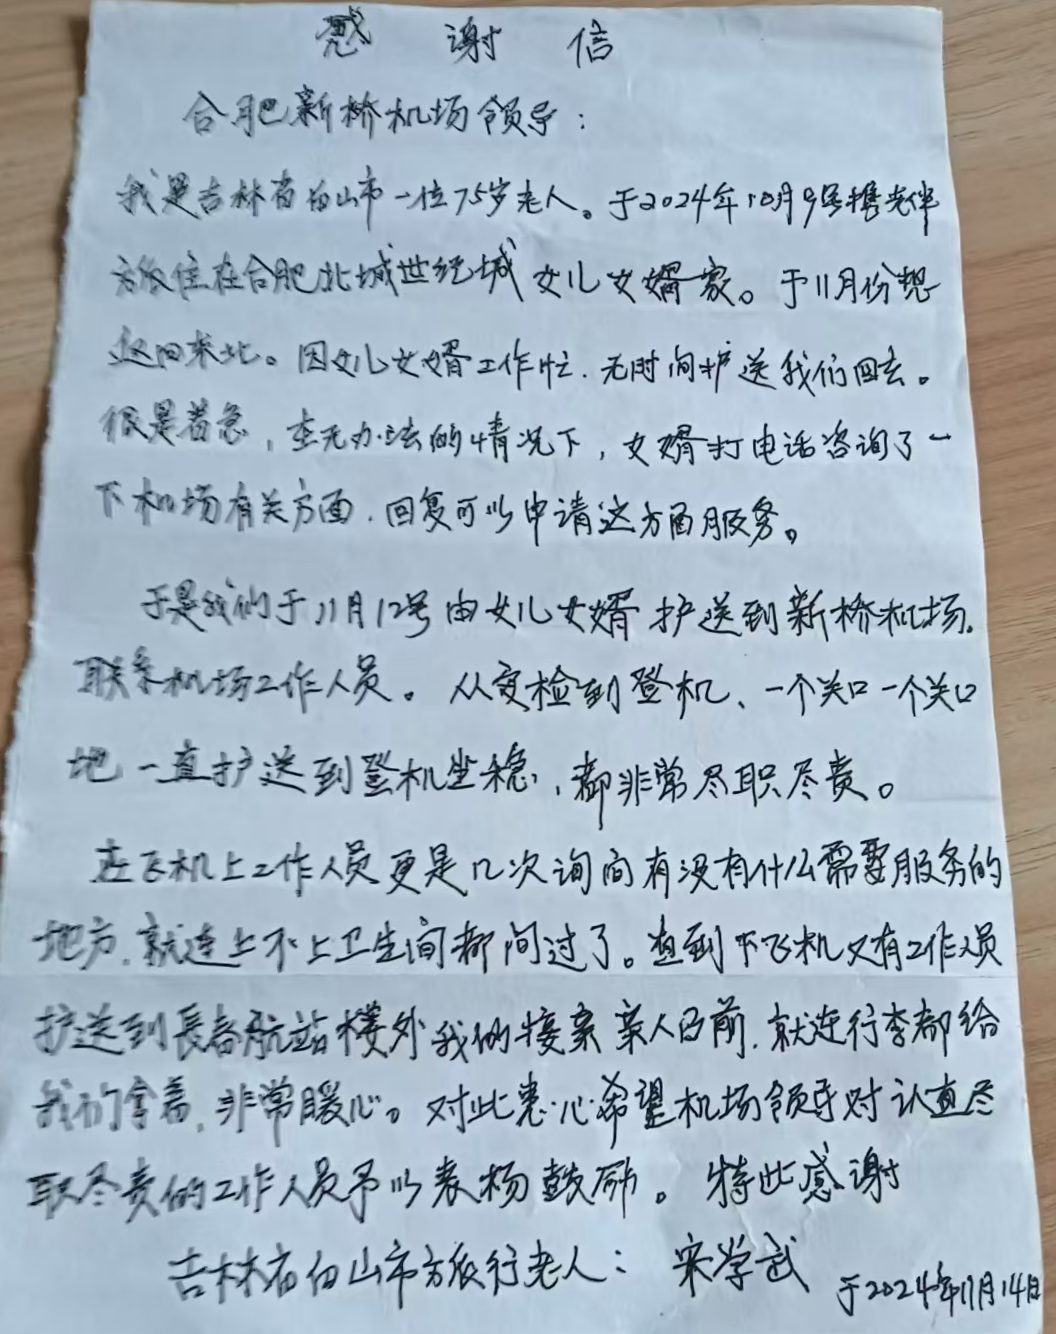 感谢信
合肥新桥机场领导：
我是吉林省白山市一位75岁老人。于2024年10月9号携老伴
旅住在合肥北城世纪城女儿女婿家。于11月份想
返回东北。因女儿女婿工作忙.无时间护送我们回去。
很是着急，在无办法的情况下，女婿打电话咨询了一
下机场有关方面.回复可以申请这方面服务。
于是我们于11月12号由女儿女婿护送到新桥机场.
联系机场工作人员。从安检到登机、一个关口一个关口
地一直护送到登机坐稳，都非常尽职尽责。
在飞机上工作人员更是几次询问有没有什么需要服务的
地方.就连上不上卫生间都问过了。直到下飞机又有工作人员
护送到長春航站楼外我的接亲人面前.就连行李都给
我们拿着.非常暖心。对此衷心希望机场领导对认真尽
职尽责的工作人员予以表杨鼓励。特此感谢
吉林省白山市旅行老人：宋学武
于2024年11月14日